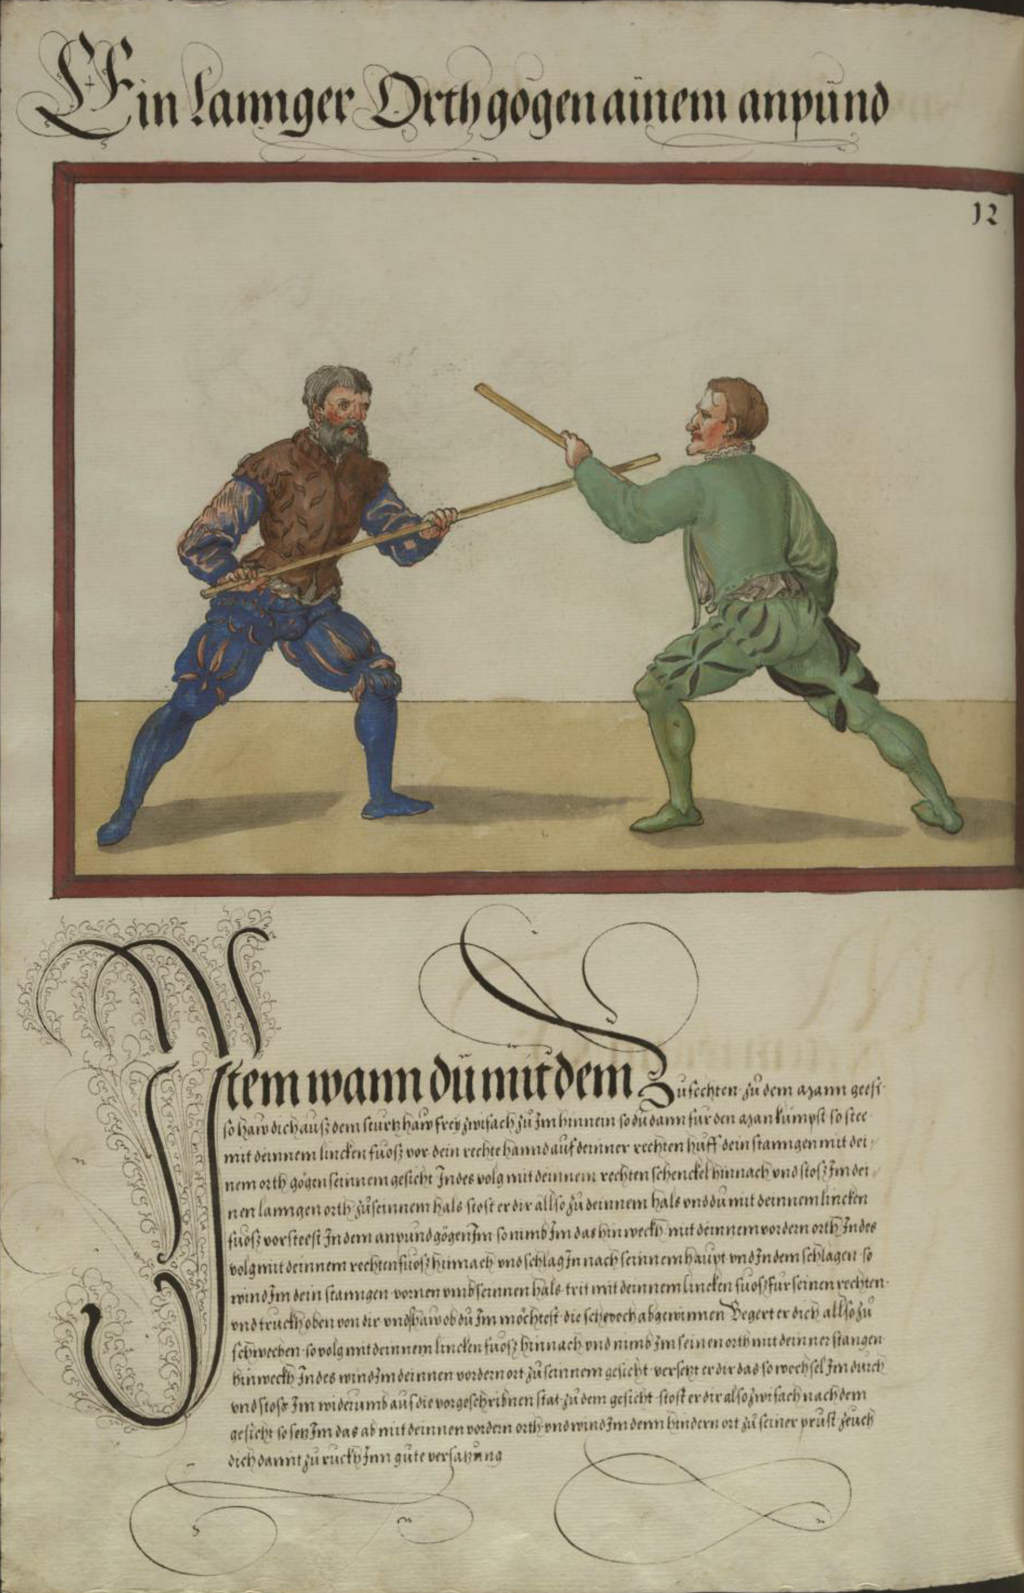 Ein lannger Orth gögen ainem anpund
12
Item wann dü mit dem Zufechten zü dem Mann geest
so haw dich auß dem sturtzhaw frey zwifach zü Im hinnein so dü dann für den Man kumpst so stee
mit deinnem lincken fuosz vor dein rechte hannd auf deinner rechten hüff dein stanngen mit dei
nem orth gögen seinnem gesicht Indes volg mit deinnem rechten schenckel hinnach vnd stosz Im dei
nen lanngen orth zü seinnem hals stost er dir allso zü deinnem hals vnd du mit deinnem lincken
fuosz vor steest In dem anpund gögen Im so nimb Im das hinweckh mit deinnem vordern orth Indes
volg mit deinnem rechten fuosz hinnach vnd schlag In nach seinnem haupt vnd In dem schlagen so
wind Im dein stanngen vornen vmb seinnen hals trit mit deinnem lincken fuosz für seinen rechten
vnd truckh oben von dir vnd schaw ob dü Im möchtest die schwech abgewinnen Begert er dich allso zü
schwechen so volg mit deinnem lincken fuosz hinnach vnd nimb Im seinen orth mit deinner stangen
hinweckh Indes wind Im deinnen vordern ort zü seinnem gesicht versetzt er dir das so wechsel Im durch
vnd stosz Im widerumb auf die vorgeschribnen stat zü dem gesicht stost er dir also zwifach nach dem
gesicht so setz Im das ab mit deinnen vordern orth vnd wind Im denn hindern ort zü seiner prust zeuch
dich damit zü ruckh Inn güte versatzung